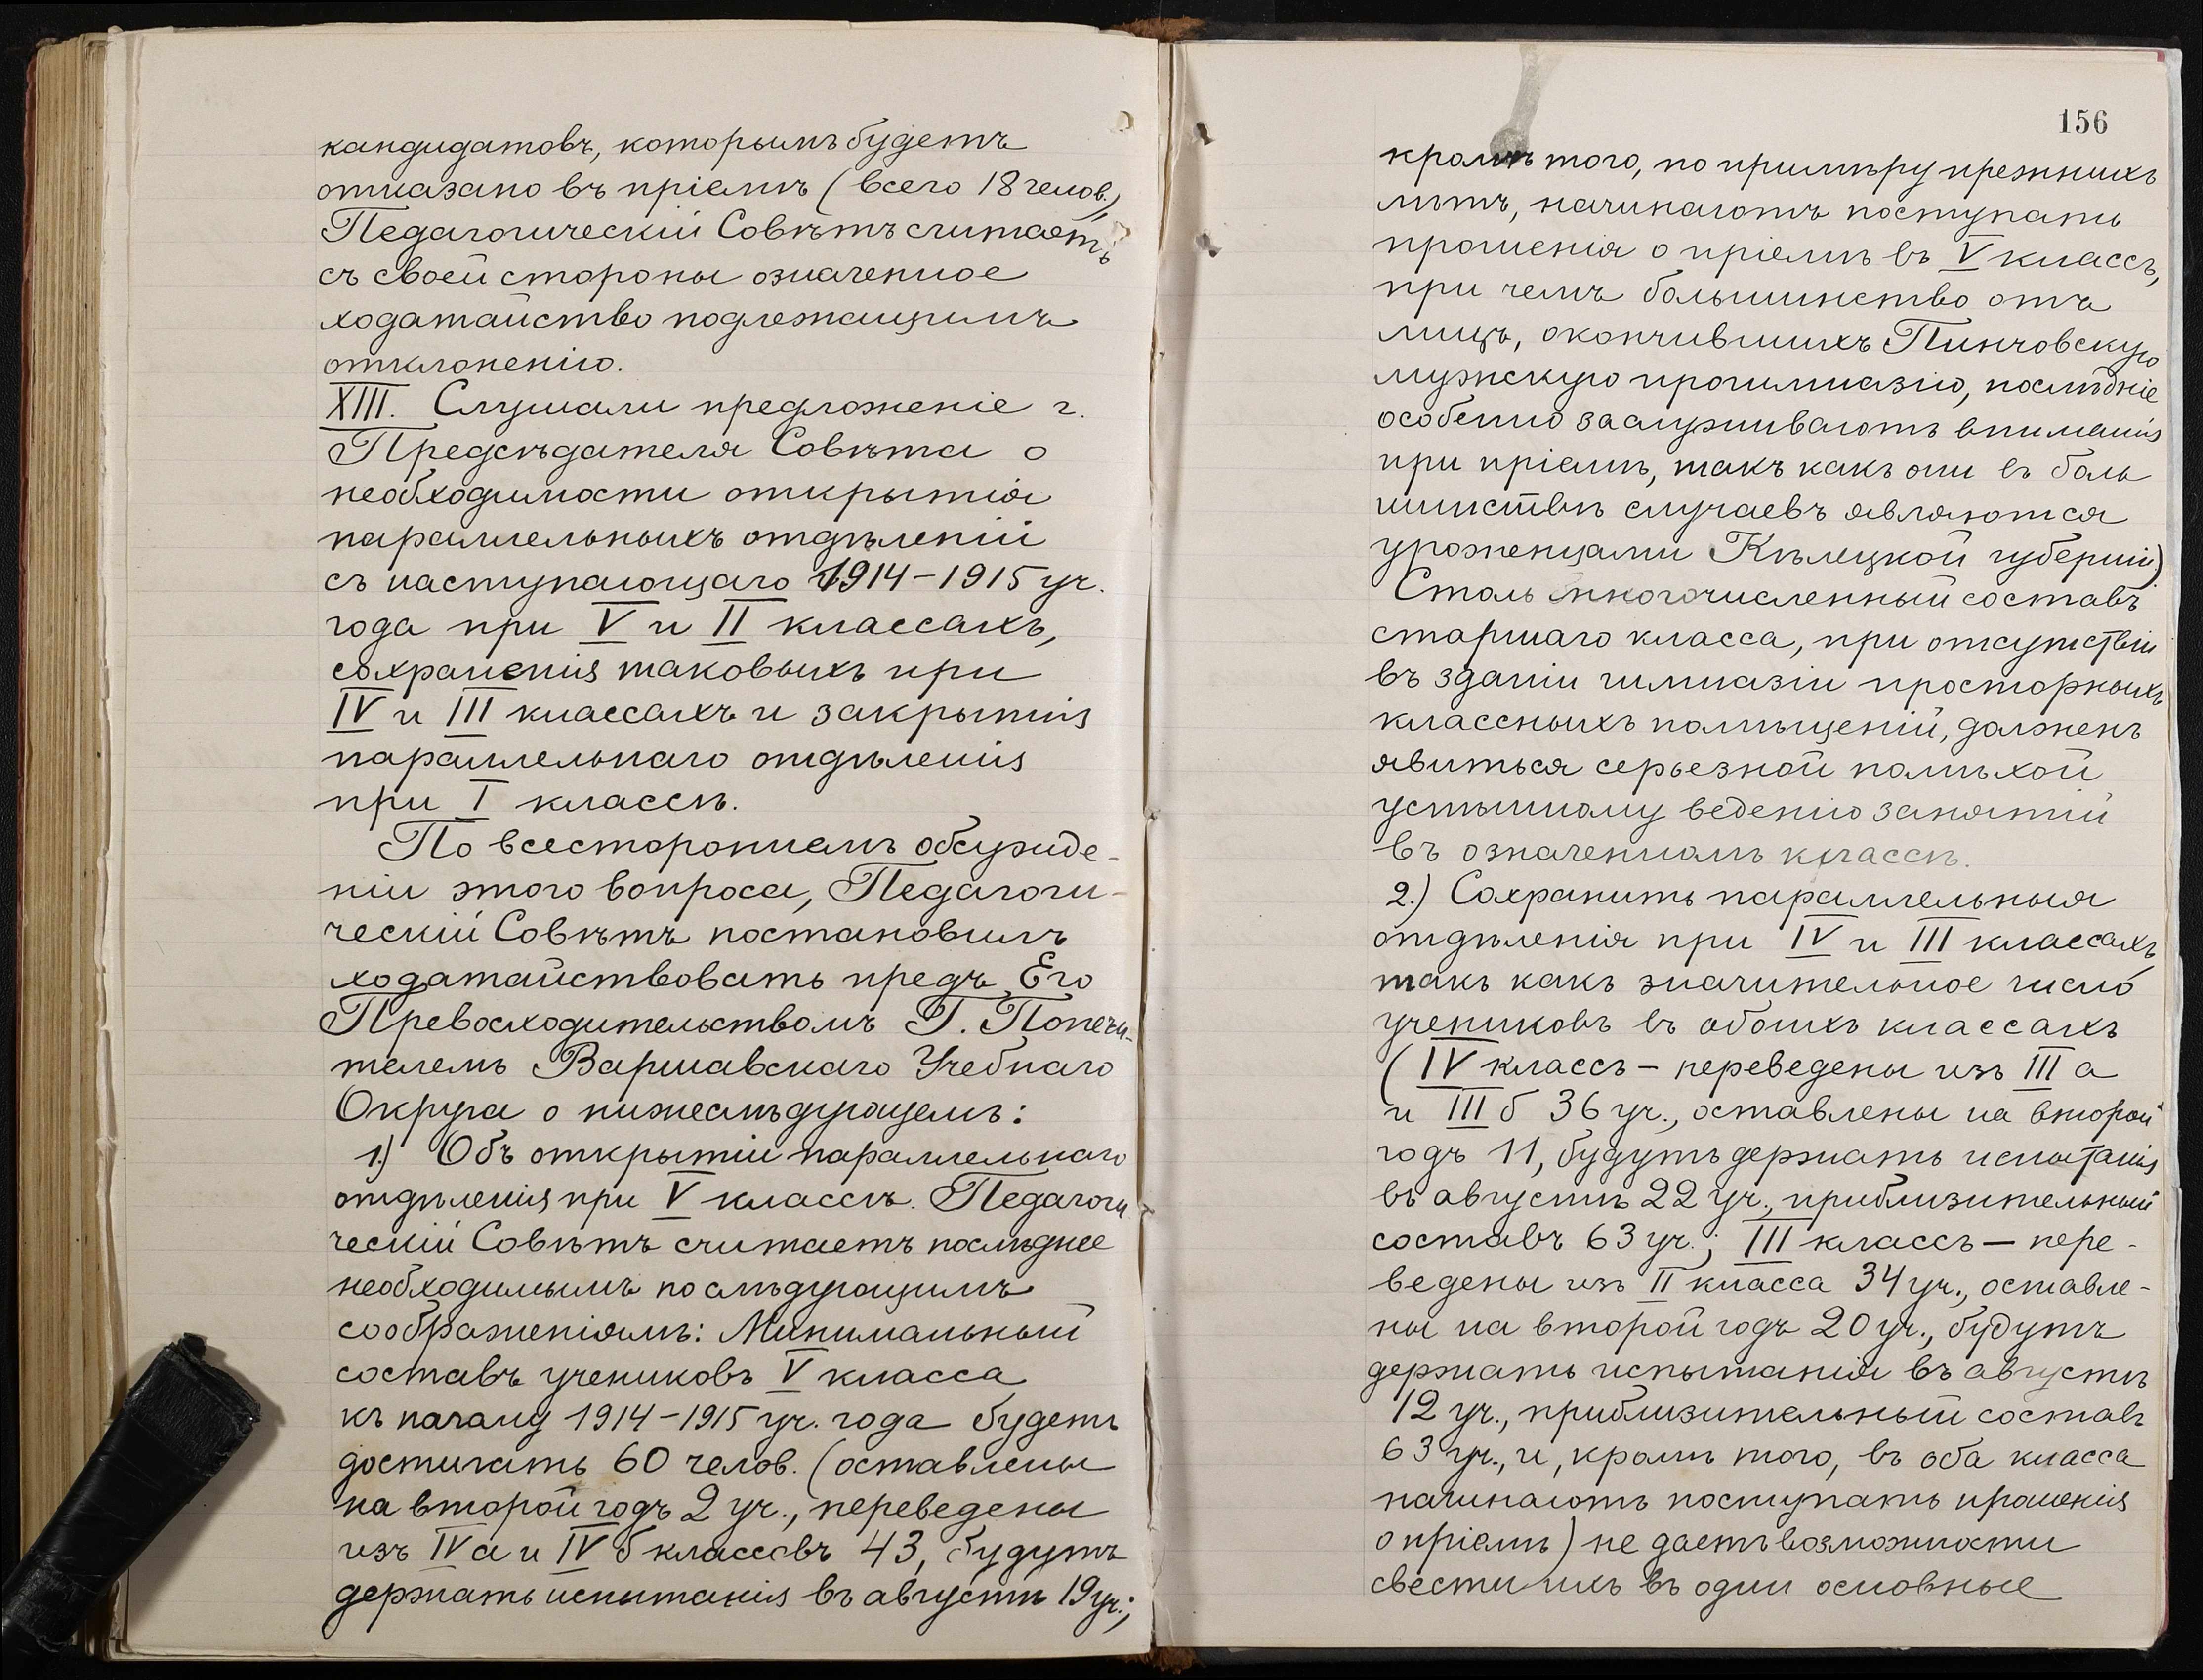 кандидатовъ, которымъ будетъ
отказано въ пріемѣ (всего 18 челов.),
Педагогическій Совѣтъ считаетъ
съ своей стороны означенное
ходатайство подлежащимъ
отклоненію.
XIII. Слушали предложеніе г.
Предсѣдателя Совѣта о
необходимости открытія
параллельныхъ отдѣленій
съ наступающаго 1914-1915 уч.
года при V и II классахъ,
сохраненія таковыхъ при
IV и III классахъ и закрытія
параллельнаго отдѣленія
при I классѣ.
По всестороннемъ обсужде-
ніи этого вопроса, Педагоги-
ческій Совѣтъ постановилъ
ходатайствовать предъ Его
Превосходительствомъ Г. Попечи-
телемъ Варшавскаго Учебнаго
Округа о нижеслѣдующемъ:
1.) Объ открытіи параллельнаго
отдѣленія при V классѣ. Педагоги
ческій Совѣтъ считаетъ послѣднее
необходимымъ по слѣдующимъ
соображеніямъ: Минимальный
составъ учениковъ V класса
къ началу 1914-1915 уч. года будетъ
достигать 60 челов. (оставлены
на второй годъ 2 уч., переведены
изъ IV а и IV б классовъ 43, будутъ
держать испытанія въ августѣ 19 уч.;
156
кромѣ того, по примѣру прежнихъ
лѣтъ, начинаютъ поступать
прошенія о пріемѣ въ V классъ,
при чемъ большинство отъ
лицъ, окончившихъ Пинчовскую
мужскую прогимназію, послѣдніе
особенно заслуживаютъ вниманія
при пріемѣ, такъ какъ они въ боль
шинствѣ случаевъ являются
уроженцами Кѣлецкой губерніи)
Столь многочисленный составъ
старшаго класса, при отсутствіи
въ зданіи гимназіи просторныхъ
классныхъ помѣщеній, долженъ
явиться серьезной помѣхой
успѣшному веденію занятій
въ означенномъ классѣ.
2.) Сохранить параллельныя
отдѣленія при IV и III классахъ,
такъ какъ значительное число
учениковъ въ обоихъ классахъ
(IV классъ - переведены изъ III а
и III б 36 уч., оставлены на второй
годъ 11, будутъ держать испытанія
въ августѣ 22 уч., приблизительный
составъ 63 уч.; III классъ — пере-
ведены изъ II класса 34 уч., оставле-
ны на второй годъ 20 уч., будутъ
держать испытанія въ августѣ
12 уч., приблизительный составъ
63 уч., и, кромѣ того, въ оба класса
начинаютъ поступать прошенія
о пріемѣ) не даетъ возможности
свести ихъ въ одни основные